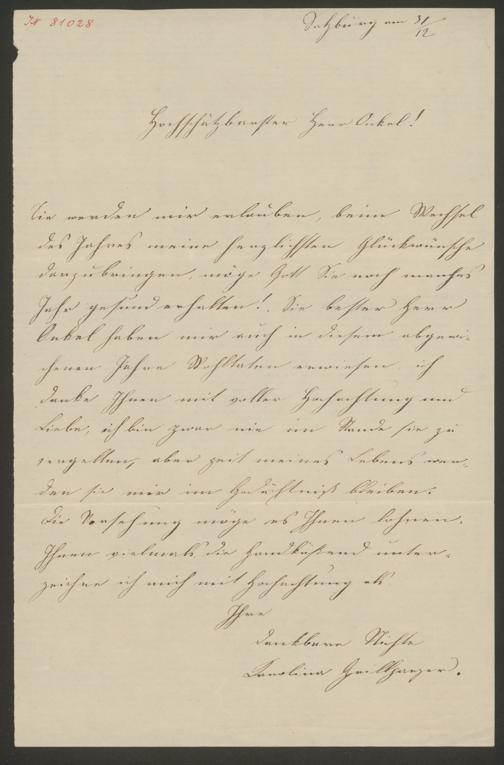 IN 81028
Salzburg am 31/12
Hochschätzbarster Herr Onkel!
Sie werden mir erlauben, beim Wechsel
des Jahres meine herzlichsten Glückwünsche
darzubringen, möge Gott Sie noch manches
Jahr gesund erhalten! Sie bester Herr
Onkel haben mir auch in diesem abgewi-
chenen Jahre Wohltaten erwiesen, ich
danke Ihnen mit voller Hochachtung und
Liebe, ich bin zwar nie im Stande sie zu
vergelten, aber zeit meines Lebens wer-
den sie mir im Gedächtniß bleiben.
Die Vorsehung möge es Ihnen lohnen.
Ihnen vielmals die Hand küßend unter-
zeichne ich mich mit Hochachtung als
Ihre
dankbare Nichte
Karolina Grillparzer.